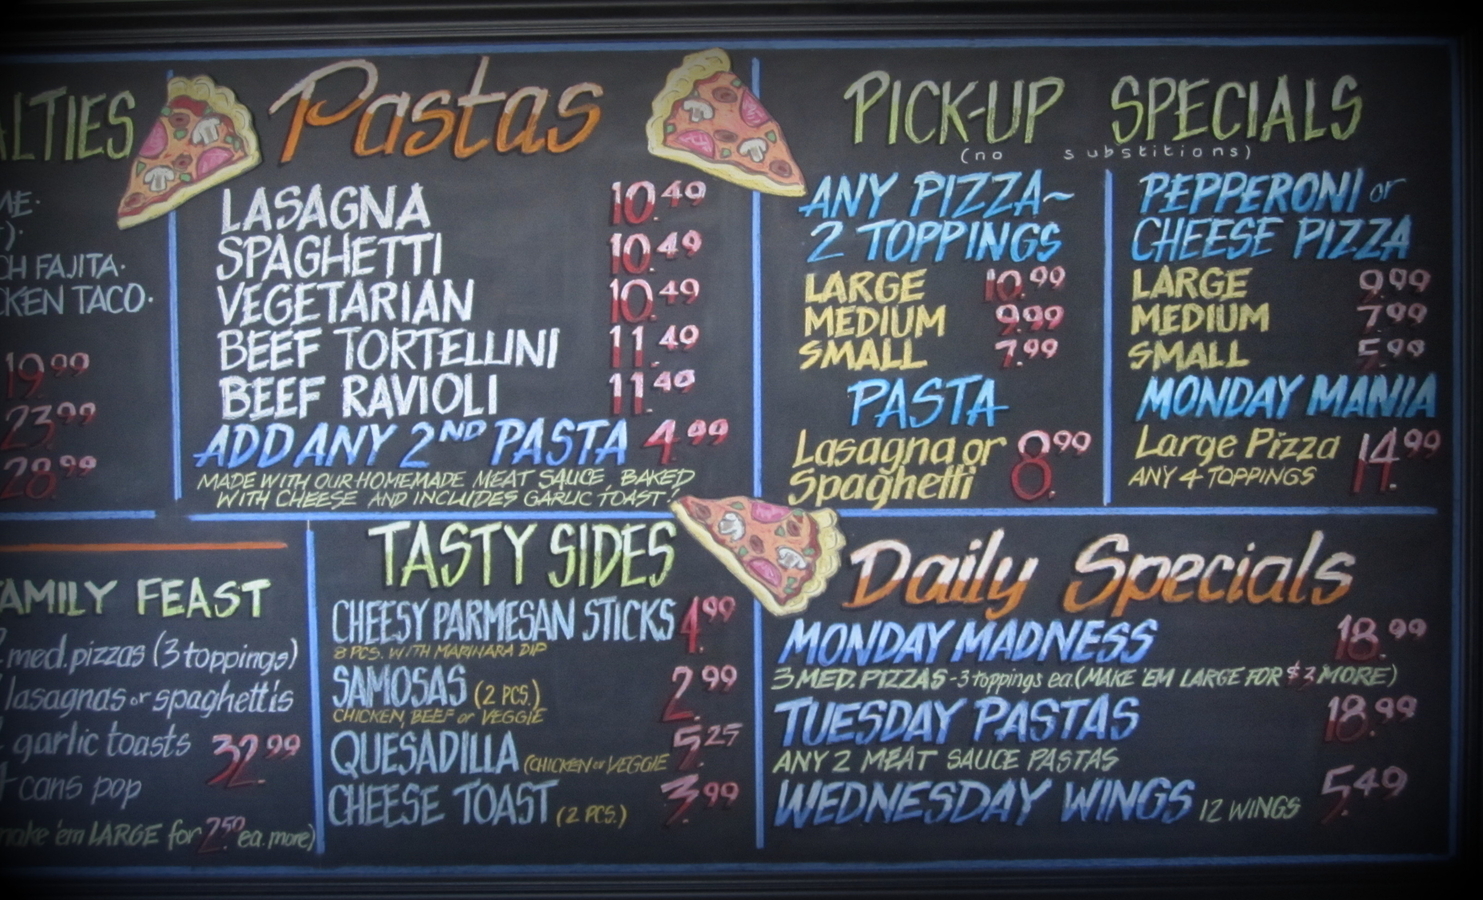 ALTIES
ME.
).
CH FAJITA.
CKEN TACO.
19.99
23.99
28.99
Pastas
LASAGNA 10.49
SPAGHETTI 10.49
VEGETARIAN 10.49
BEEF TORTELLINI 11.49
BEEF RAVIOLI 11.49
ADD ANY 2ND PASTA 4.99
MADE WITH OUR HOMEMADE MEAT SAUCE, BAKED
WITH CHEESE AND INCLUDES GARLIC TOAST!
PICK-UP SPECIALS
(no substitions)
ANY PIZZA~
2 TOPPINGS
LARGE 10.99
MEDIUM 9.99
SMALL 7.99
PASTA
Lasagna or
Spaghetti 8.99
PEPPERONI or
CHEESE PIZZA
LARGE 9.99
MEDIUM 7.99
SMALL 5.99
MONDAY MANIA
Large Pizza 14.99
ANY 4 TOPPINGS
AMILY FEAST
med. pizzas (3 toppings)
lasagnas or spaghettis
garlic toasts 32.99
cans pop
make 'em LARGE for 2.50 ea. more)
TASTY SIDES
CHEESY PARMESAN STICKS 4.99
8 PCS. WITH MARINARA DIP
SAMOSAS (2 PCS.) 2.99
CHICKEN, BEEF or VEGGIE
QUESADILLA (CHICKEN or VEGGIE 5.25
CHEESE TOAST (2 PCS.) 3.99
Daily Specials
MONDAY MADNESS 18.99
3 MED. PIZZAS - 3 toppings ea. (MAKE 'EM LARGE FOR $2 MORE)
TUESDAY PASTAS 18.99
ANY 2 MEAT SAUCE PASTAS
WEDNESDAY WINGS 12 WINGS 5.49